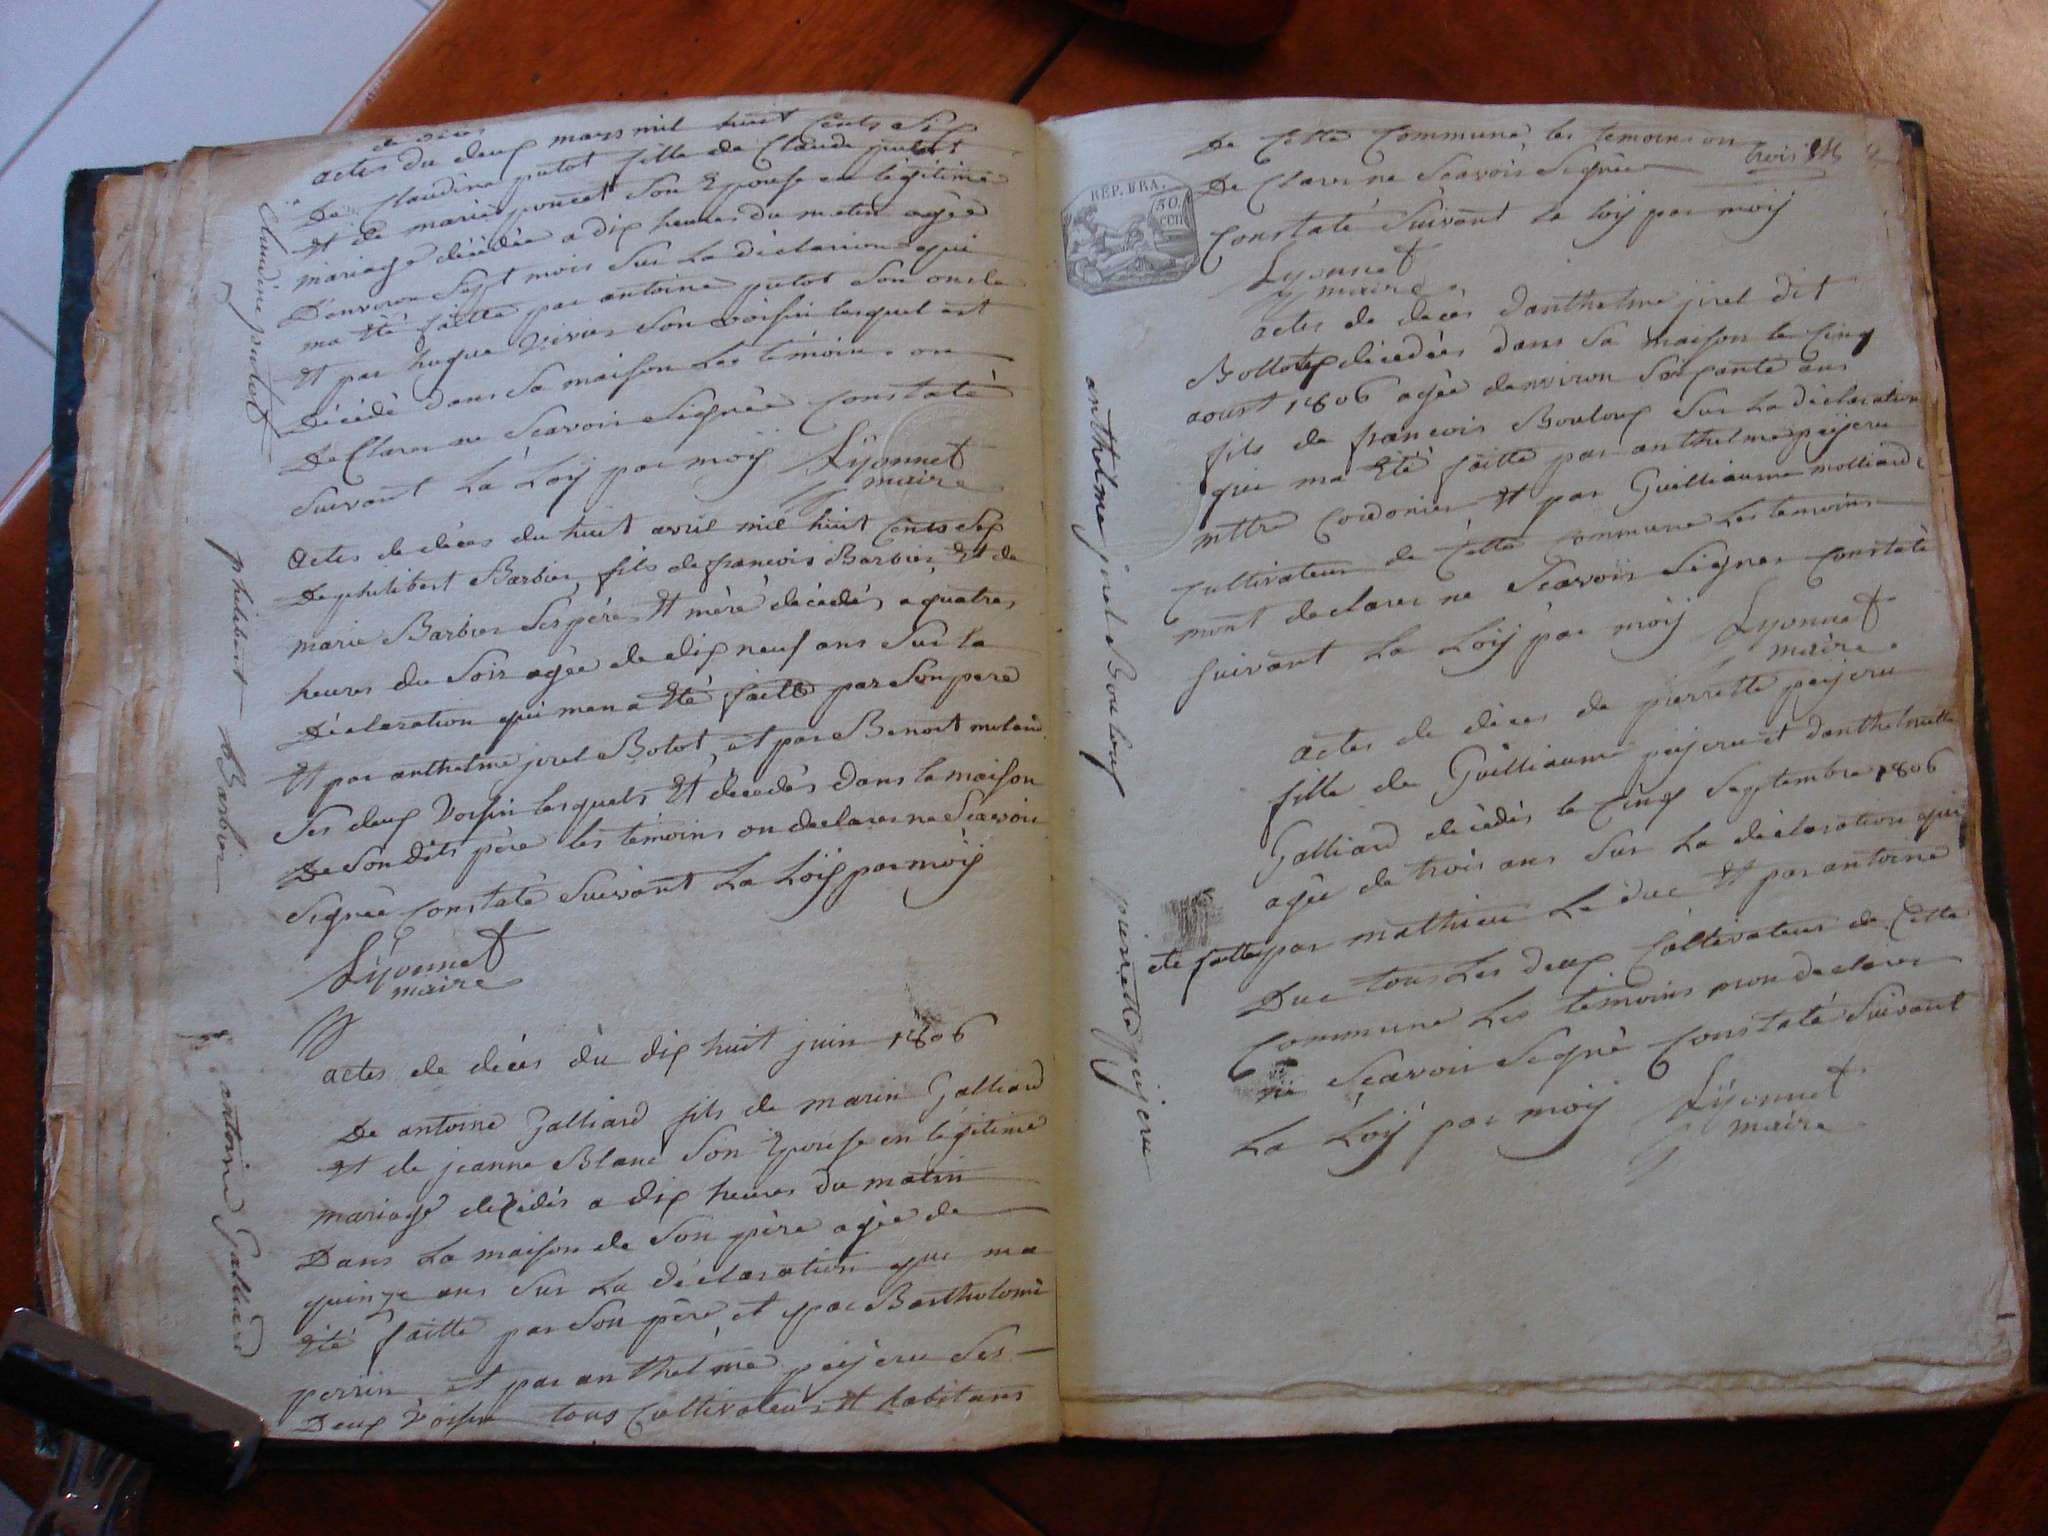 de déces
actes du deux mars mil huit Cents Six
De Claudine putot fille de Claude putot
Et de marie poncet Son Epouse en légitime
mariage décédée a dix heures du matin agée
Denviron Sept mois Sur La déclaration qui
ma Eté faitte par antoine putot Son oncle
Et par hugue Vivier Son voisin lesquel est
Décédé dans Sa maison Les témoins on
DeClarer ne Scavoir Signée Constaté
Suivant La Loÿ par moÿ Lÿonnet
maire
Claudine putot
actes de déces du huit avril mil huit Cents Six
De philibert Barbier, fils de francois Barbier Et de
marie Barbier Ses pére Et mère décédés a quatres
heures du Soir agée de dix neuf ans Sur la
Déclaration qui men a Eté faitte par Son pere
Et par anthelme jirel Botot, et par Benoit molard
Ses deux Voisin lesquels Et décédés dans la maison
De Son dits père les témoins on declarer ne Scavoir
Signée Constaté Suivant La Loÿ par moÿ
Lÿonnet
maire
philibert Barbier
actes de déces du dix huit juin 1806
De antoine Galliard fils de marin Galliard
Et de jeanne Blanc Son Epouse en légitime
mariage décédés a dix heures du matin
Dans La maison de Son père agée de
quinze ans Sur La déclaration que ma
Eté faitte par Son père, et par Bartholomé
perrin, et par anthelme peÿcru Ses
Deux Voisin tous Cultivateurs Et habitans
antoine Galliard
De Cette Commune, les temoins on
trois
DeClarer ne Scavoir Signée
REP. FRA.
50.
cen
Constaté Suivant la loÿ par moÿ
Lyonnet
maire
actes de déces Danthelme jirel dit
Bollotup décédées dans Sa maison le Cinq
aoust 1806 agée denviron Soixante ans
fils de francois Bouloux Sur La déclaration
qui ma Eté faitte par anthelme peÿcru
mttre Cordonier Et par Guilliaume molliard
Cultivateur de Cette Commune Les temoins
mont declarer ne Scavoir Signer Constaté
Suivant La Loÿ par moÿ Lyonnet
maire
anthelme jirel Bouloux
actes de déces de pierrette peÿcru
fille de Guilliaume peÿcru et danthelmette
Galliard décédés le Cinq Septembre 1806
agée de trois ans Sur La déclaration qui
ete faitte par mathieu Le duc Et par antoine
Duc tous Les deux Cultivateur de Cette
Commune Les temoins mon declarer
ne Scavoir Signé Constaté Suivant
La Loÿ par moÿ Lÿonnet
maire
pierrette peÿcru